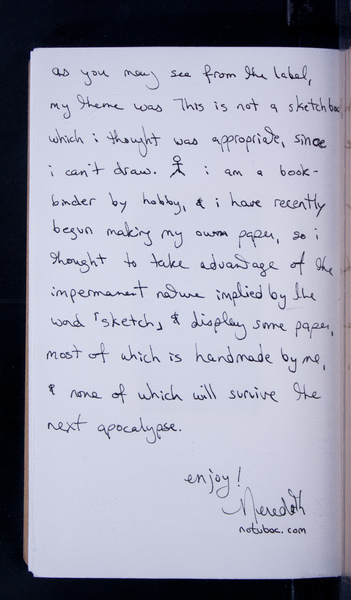 as you may see from the label,
my theme was This is not a sketchbook
which i thought was appropriate, since
i can't draw. i am a book-
binder by hobby, & i have recently
begun making my own paper, so i
thought to take advantage of the
impermanent nature implied by the
word「sketch」& display some paper,
most of which is handmade by me,
& none of which will survive the
next apocalypse.
enjoy!
Meredith
notuboc.com